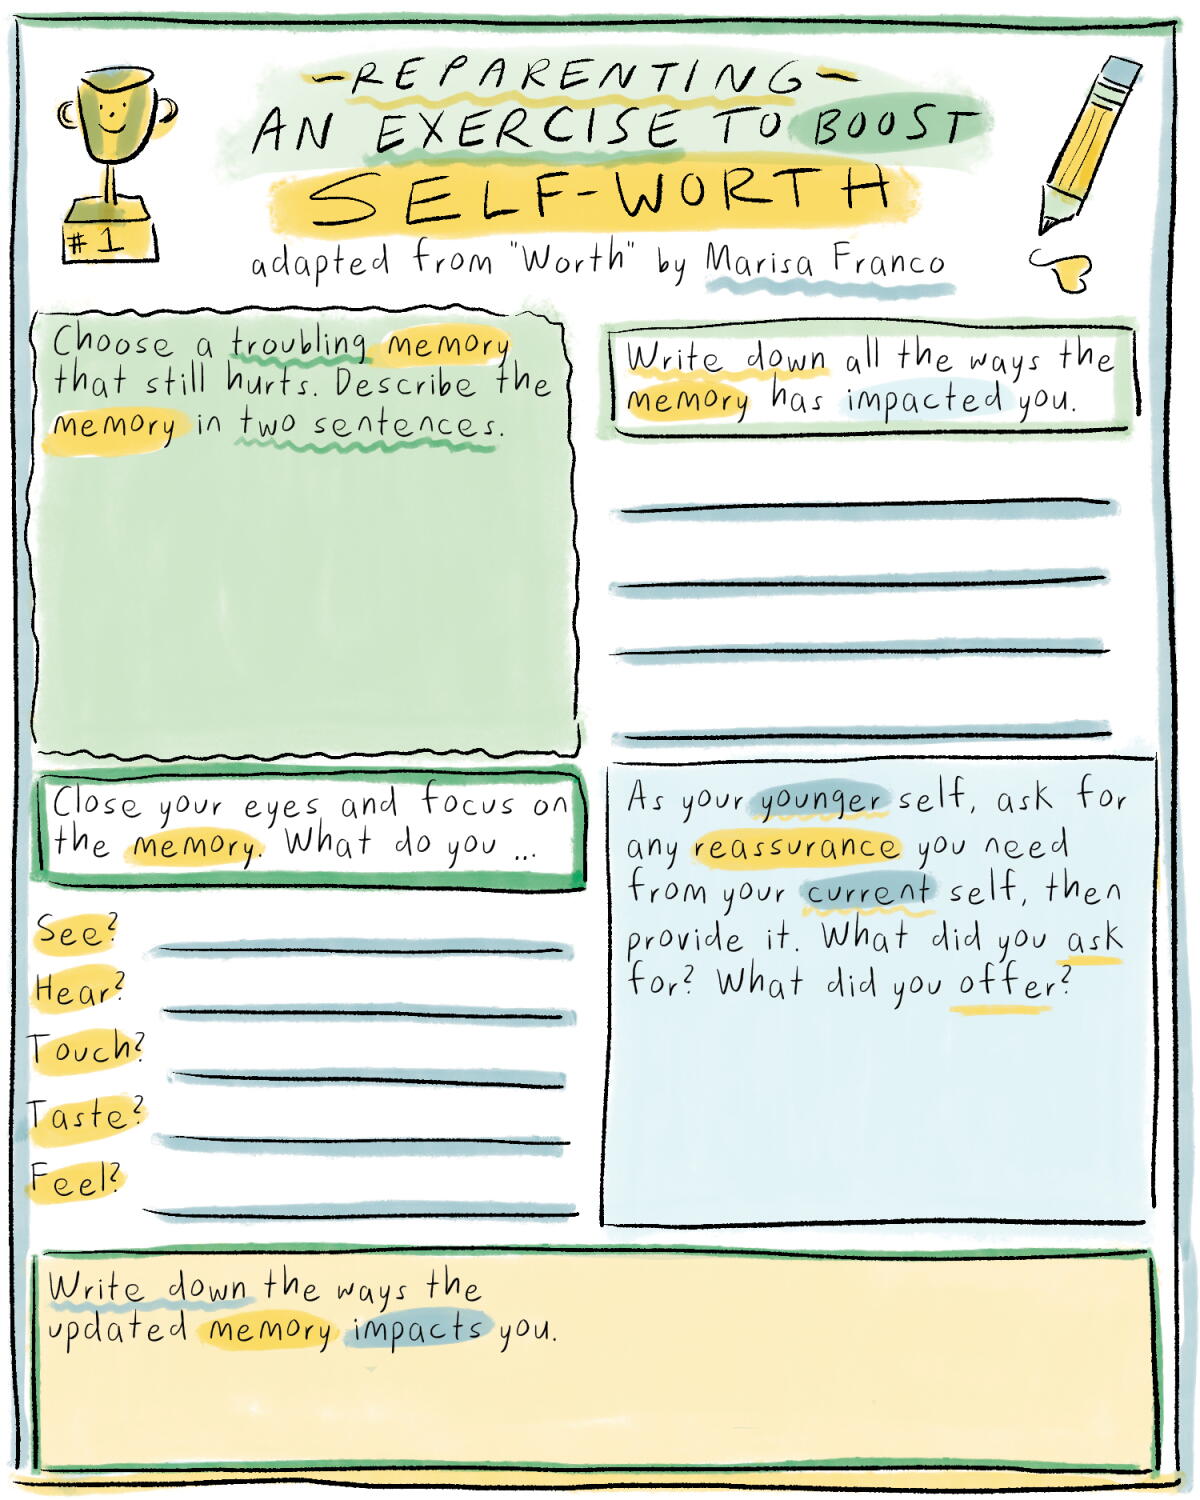 -REPARENTING-
AN EXERCISE TO BOOST
SELF-WORTH
adapted from "Worth" by Marisa Franco
#1
Choose a troubling memory
that still hurts. Describe the
memory in two sentences.
Write down all the ways the
memory has impacted you.
Close your eyes and focus on
the memory. What do you ...
See?
Hear?
Touch?
Taste?
Feel?
As your younger self, ask for
any reassurance you need
from your current self, then
provide it. What did you ask
for? What did you offer?
Write down the ways the
updated memory impacts you.